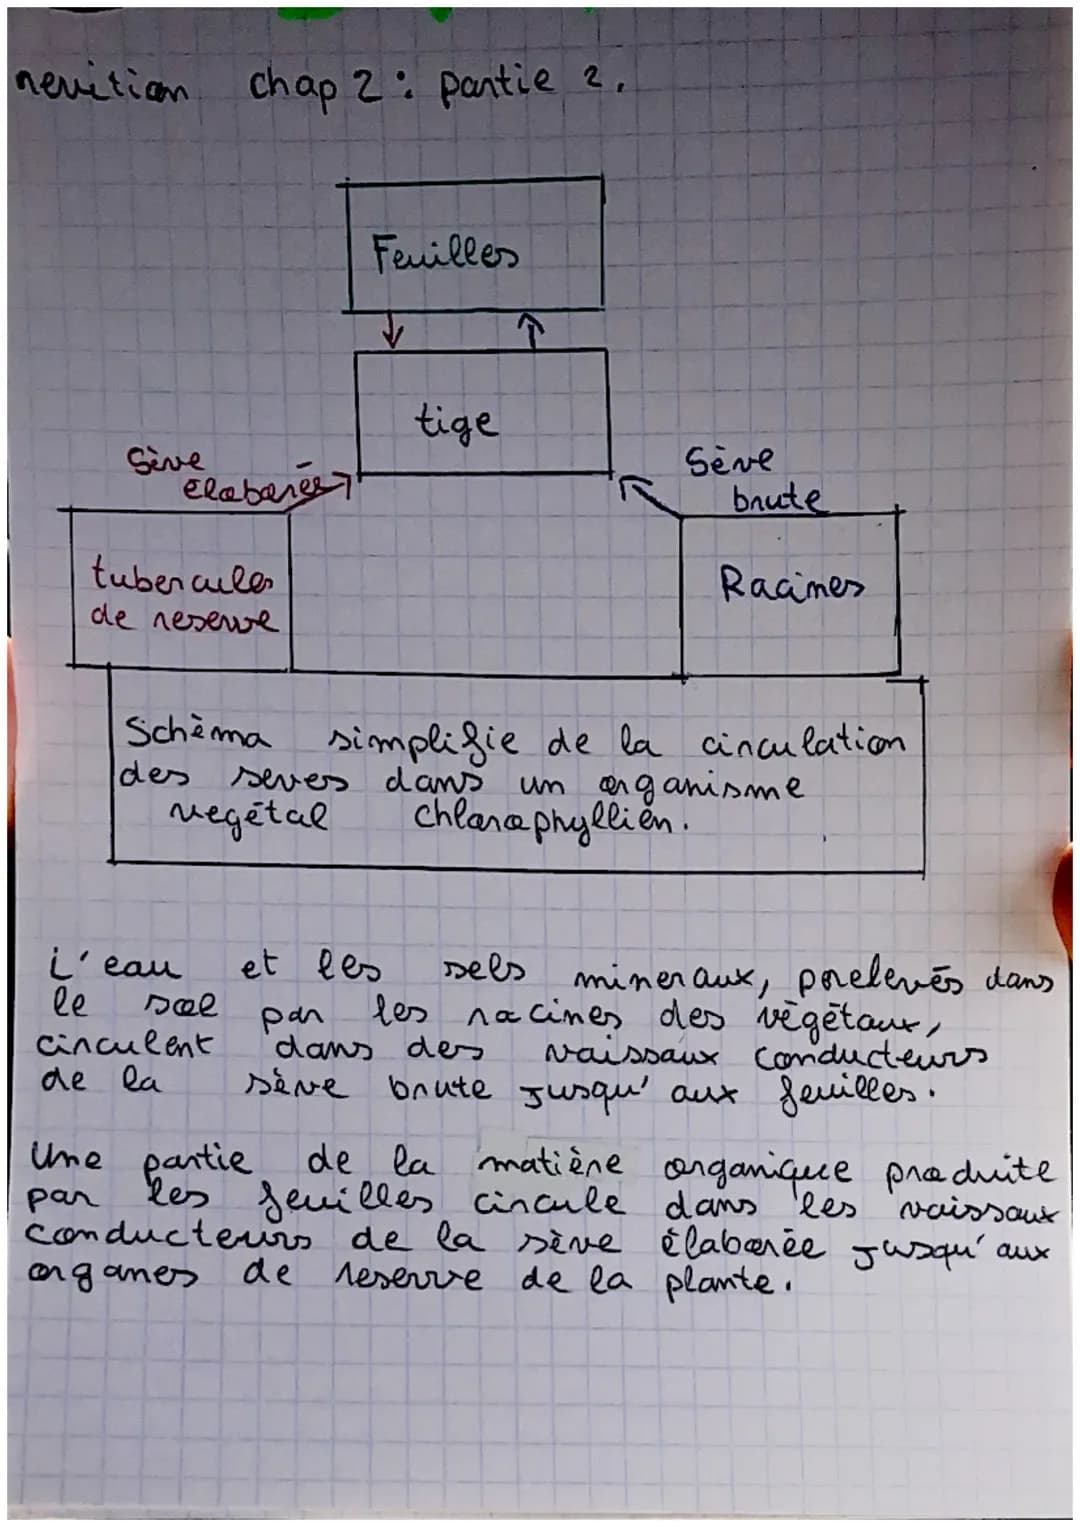 nevition chap 2 : partie 2.
Feuilles
tige
Sève
élaborées
Sève
brute
tubercules
de reserve
Racines
Schèma simplifie de la circulation
des seves dans un organisme
vegétal chlorophyllien.
L'eau et les sels mineraux, prelevés dans
le sol par les racines des végétaux,
circulent dans des vaissaux conducteurs
de la sève brute jusqu'aux feuilles.
Une partie de la matière organique produite
par les feuilles circule dans les vaissaux
conducteurs de la sève élaborée jusqu'aux
organes de reserve de la plante.